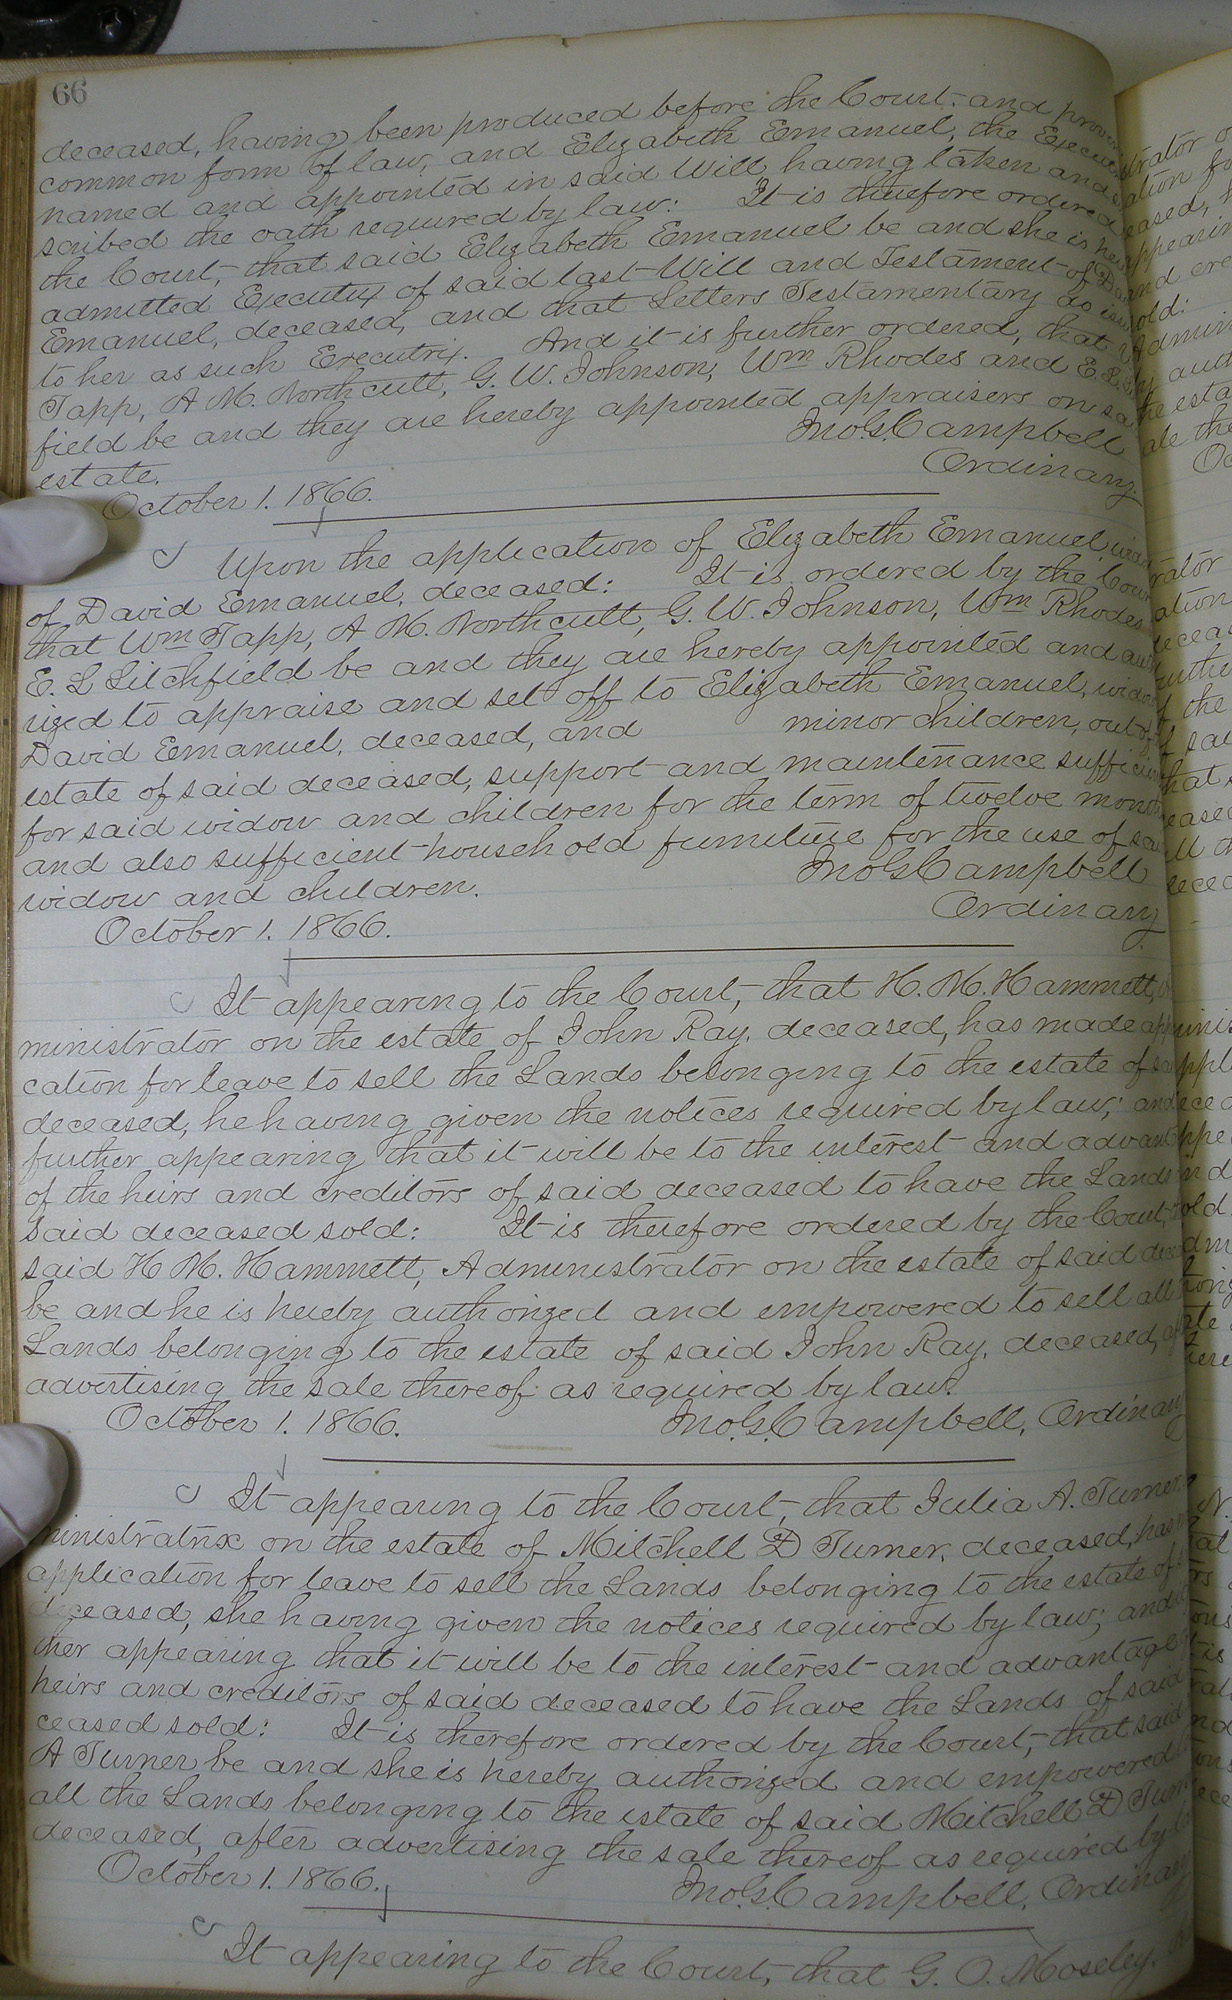 66
deceased, having been produced before the Court, and proven
common form of law, and Elizabeth Emanuel, the Executrix
named and appointed in said Will having taken and
scribed the oath required by law: It is therefore ordered
the Court, that said Elizabeth Emanuel be and she is
admitted Executrix of said last Will and Testament of
Emanuel, deceased, and that Letters Testamentary do issue
to her as such Executrix. And it is further ordered, that
Tapp, A M. Northcutt, G. W. Johnson, Wm Rhodes and E. L.
field be and they are hereby appointed appraisers on
estate.
Jno. G. Campbell
Ordinary.
October 1. 1866.
Upon the application of Elizabeth Emanuel,
of David Emanuel, deceased: It is ordered by the Court
that Wm Tapp, A M. Northcutt, G. W. Johnson, Wm Rhodes
E. L Litchfield be and they are hereby appointed and
rized to appraise and set off to Elizabeth Emanuel, widow
David Emanuel, deceased, and minor children, out of
estate of said deceased, support and maintenance sufficient
for said widow and children for the term of twelve months
and also sufficient household furniture for the use of
widow and children.
Jno G. Campbell
Ordinary.
October 1. 1866.
It appearing to the Court, that H. M. Hammett,
ministrator on the estate of John Ray, deceased, has made
cation for leave to sell the Lands belonging to the estate of
deceased, he having given the notices required by law; and
further appearing that it will be to the interest and advant
of the heirs and creditors of said deceased to have the Lands
said deceased sold: It is therefore ordered by the Court,
said H M. Hammett, Administrator on the estate of said
be and he is hereby authorized and empowered to sell all
Lands belonging to the estate of said John Ray, deceased,
advertising the sale thereof as required by law.
October 1. 1866. Jno. G. Campbell, Ordinary
It appearing to the Court, that Julia A. Turner
ministratrix on the estate of Mitchell D Turner, deceased, has
application for leave to sell the Lands belonging to the estate of
deceased, she having given the notices required by law; and
ther appearing that it will be to the interest and advantage
heirs and creditors of said deceased to have the Lands of said
ceased sold: It is therefore ordered by the Court, that said
A Turner be and she is hereby authorized and empowered
all the Lands belonging to the estate of said Mitchell D Turner
deceased, after advertising the sale thereof as required by
October 1. 1866. Jno. G. Campbell, Ordinary
It appearing to the Court, that G. O. Moseley,